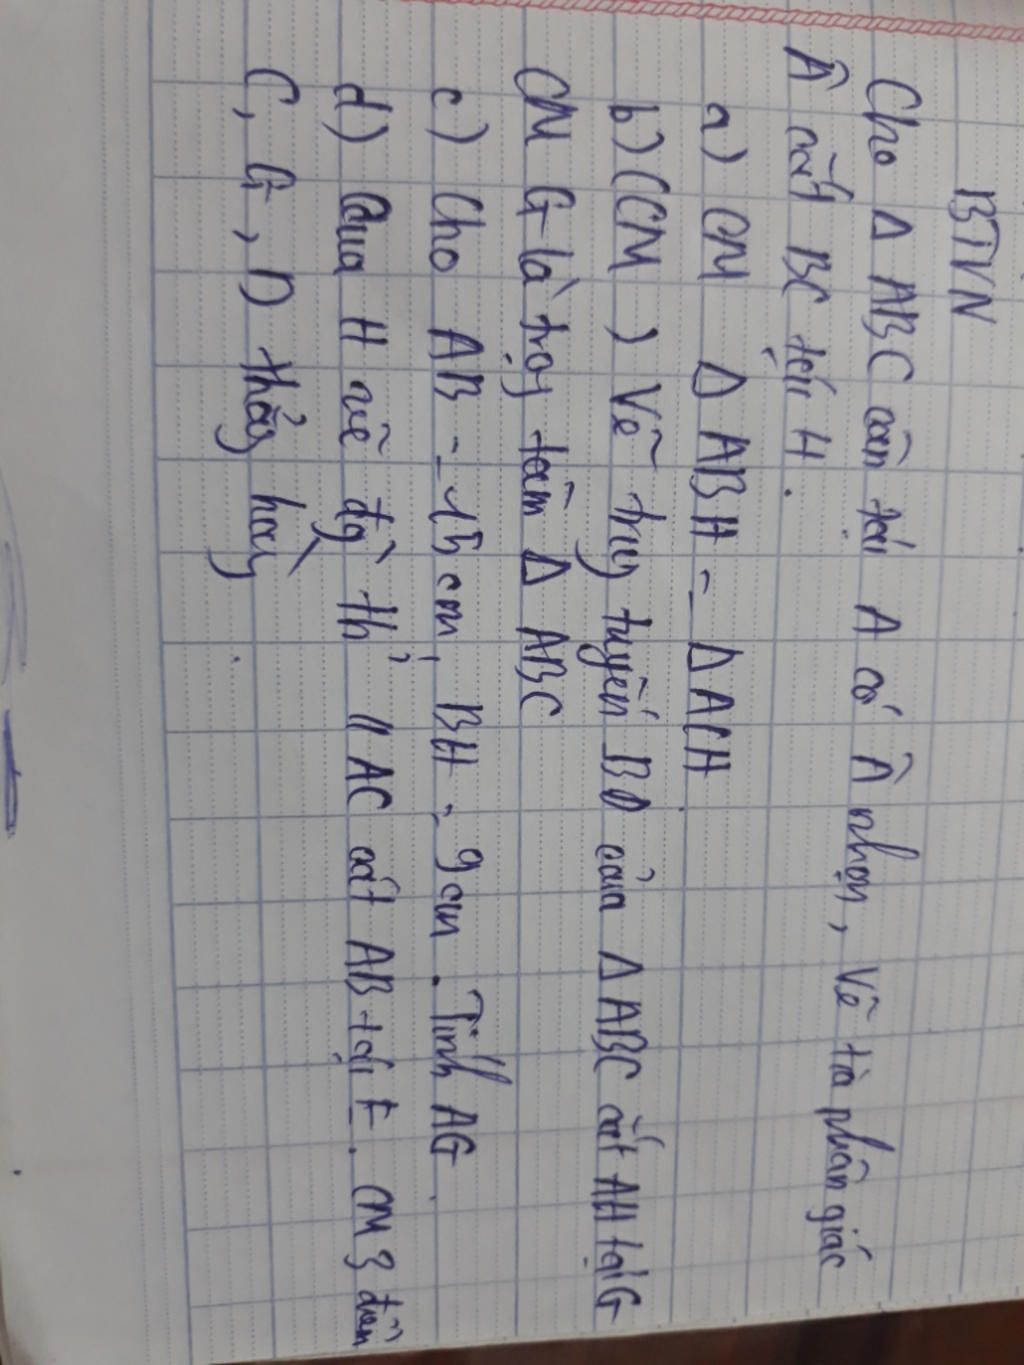 BTVN
Cho Δ ABC cân tại A có Â nhọn, Vẽ tia phân giác
Â cắt BC tại H.
a) CM Δ ABH = Δ ACH
b) (CM) Vẽ trug tuyến BD của Δ ABC cắt AH tại G
CM G là trọg tâm Δ ABC
c) Cho AB = 15 cm, BH = 9 cm. Tính AG.
d) Qua H vẽ đg` th̉ // AC cắt AB tại E. CM 3 điểm
C, G, D thẳg hàg.